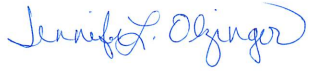 Jennifer L. Olzinger